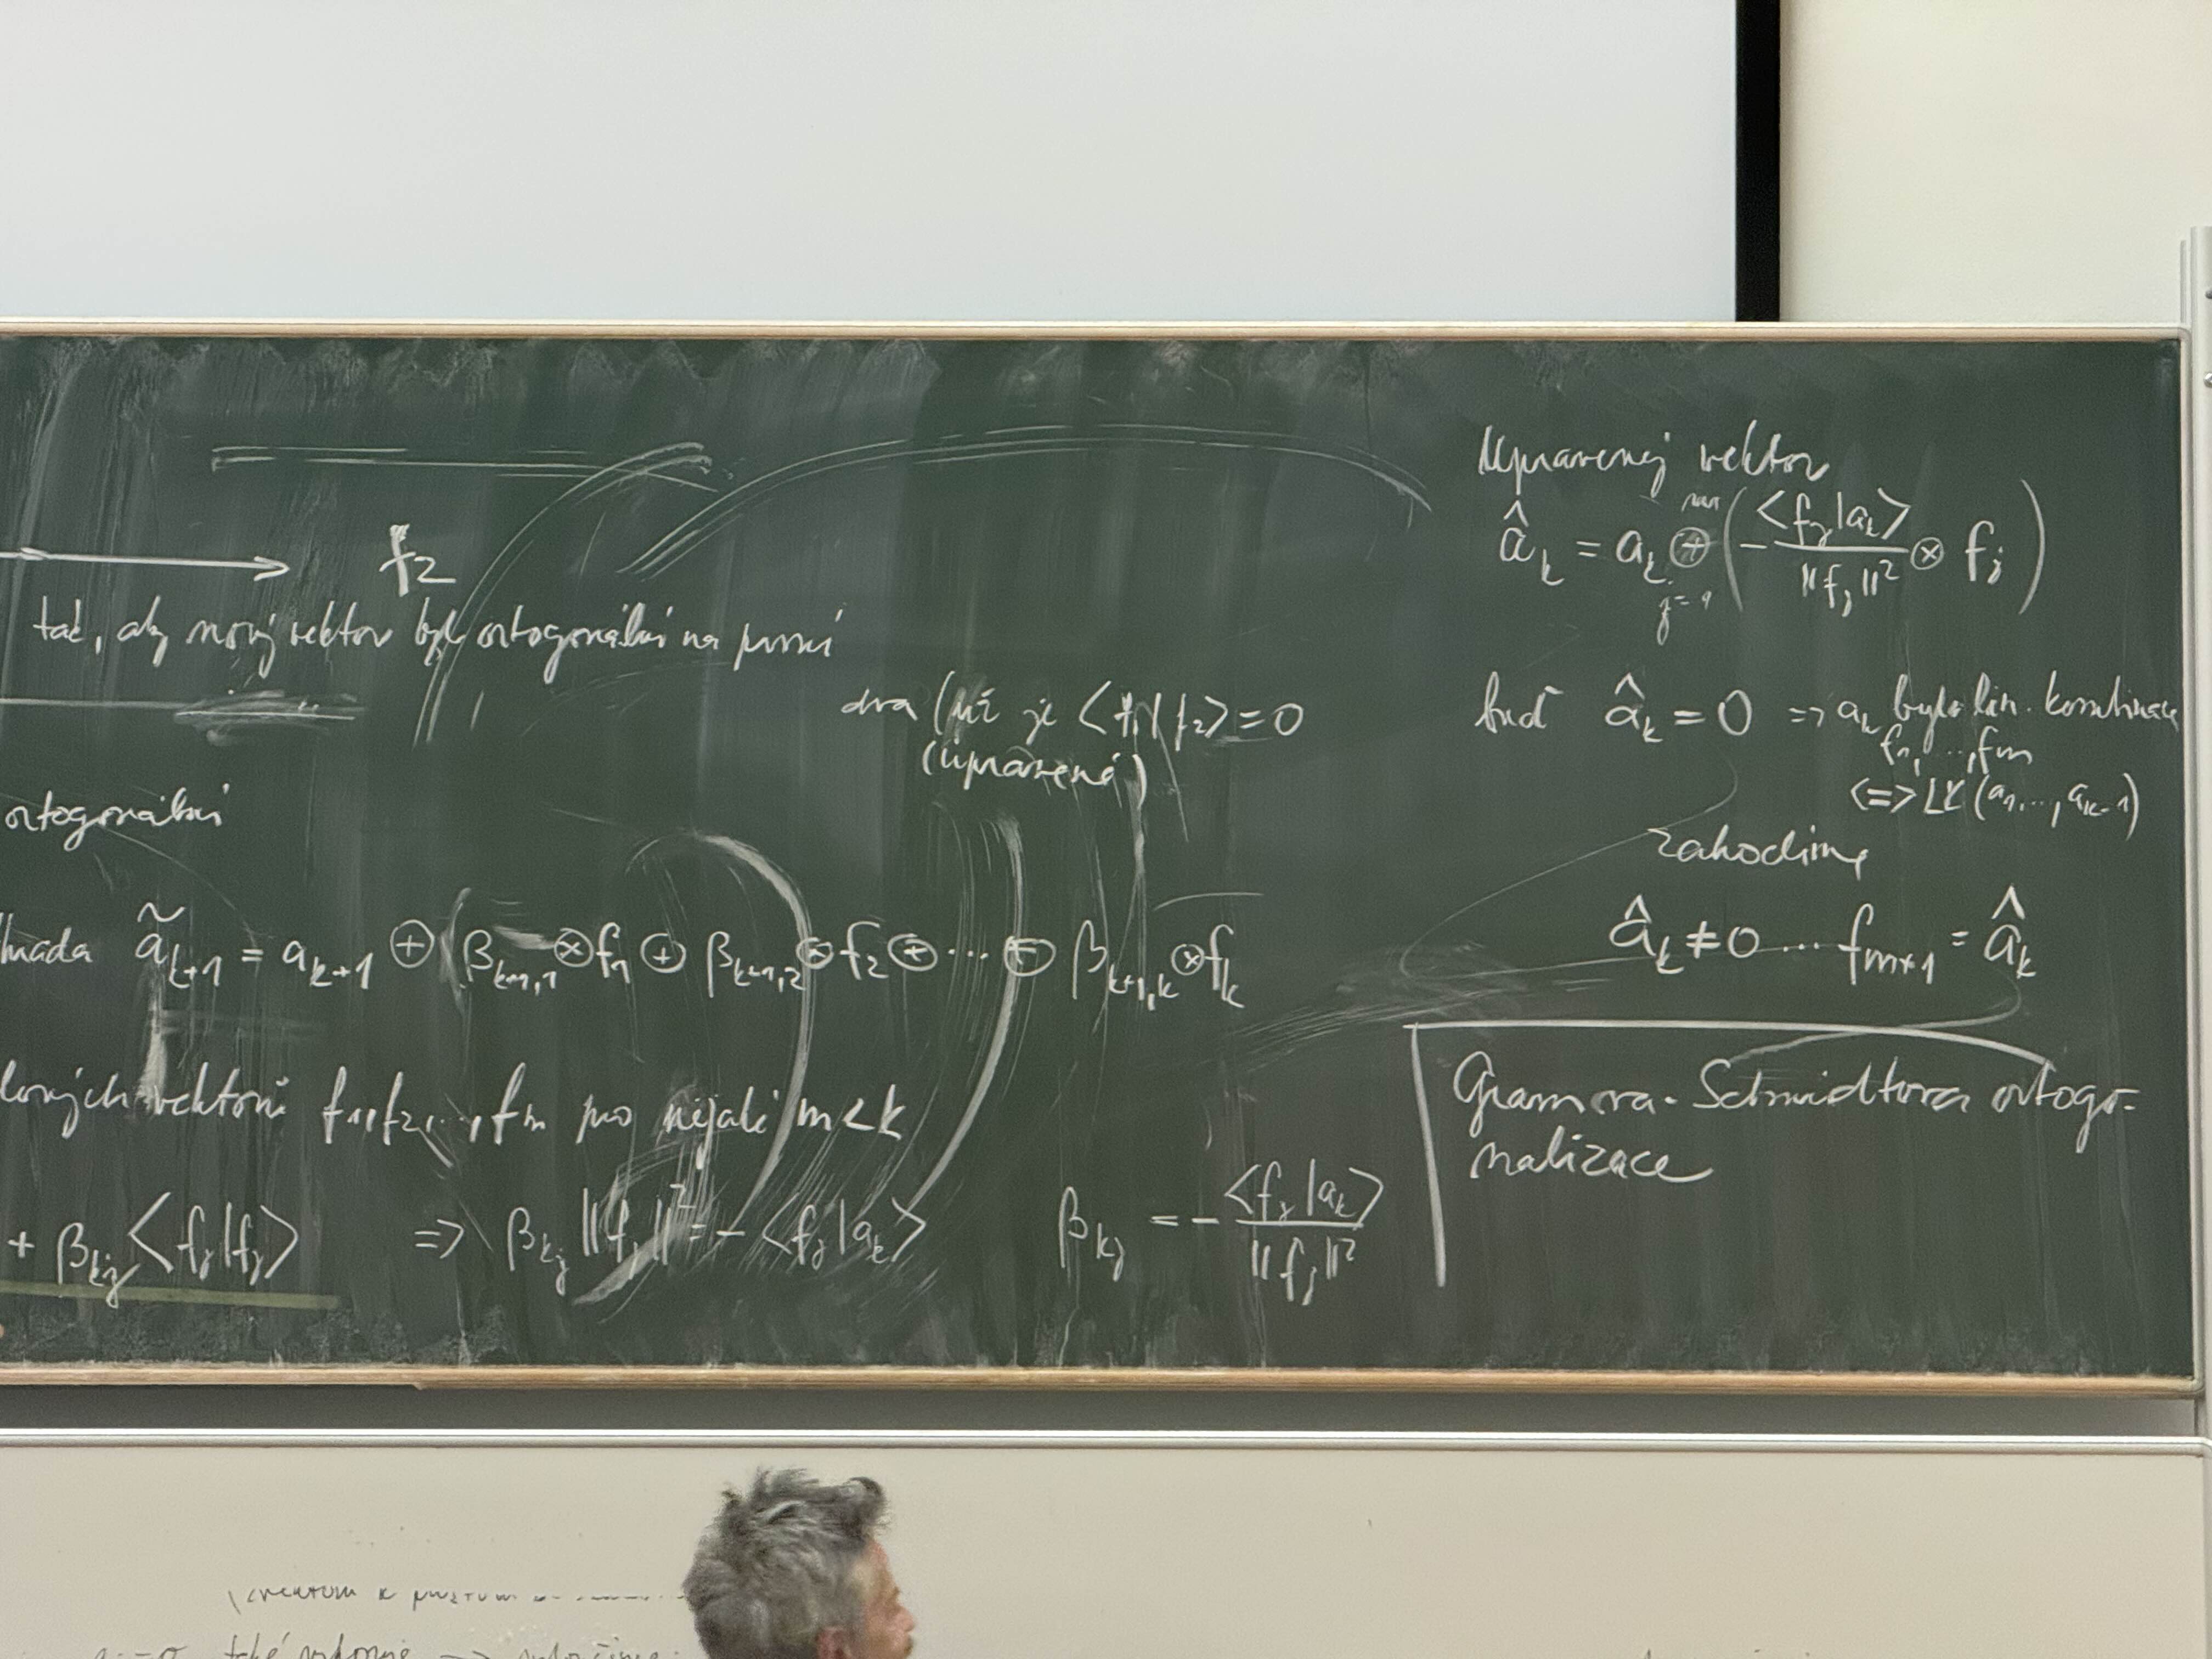 f₂
tak, aby nový vektor byl ortogonální na první
dva (už je ⟨f₁|f₂⟩=0
(upravené)
ortogonální
ã_{k+1} = a_{k+1} ⊕ (β_{k+1,1} ⊗ f₁ ⊕ β_{k+1,2} ⊗ f₂ ⊕ ... ⊕ β_{k+1,k} ⊗ f_k
vektorů f₁, f₂, ..., f_m pro nějaké m<k
+ β_{kj} ⟨f_j|f_j⟩ ⇒ β_{kj} ‖f_j‖² = - ⟨f_j|a_k⟩ β_{kj} = - ⟨f_j|a_k⟩ / ‖f_j‖²
Upravený vektor
â_k = a_k ⊕_{j=1} ( - ⟨f_j|a_k⟩ / ‖f_j‖² ⊗ f_j )
buď â_k = 0 ⇒ a_k bylo lin. kombinace
f₁, ..., f_m
⟺ LK (a₁, ..., a_{k-1})
zahodíme
â_k ≠ 0 ... f_{m+1} = â_k
Gramova-Schmidtova ortogo-
nalizace